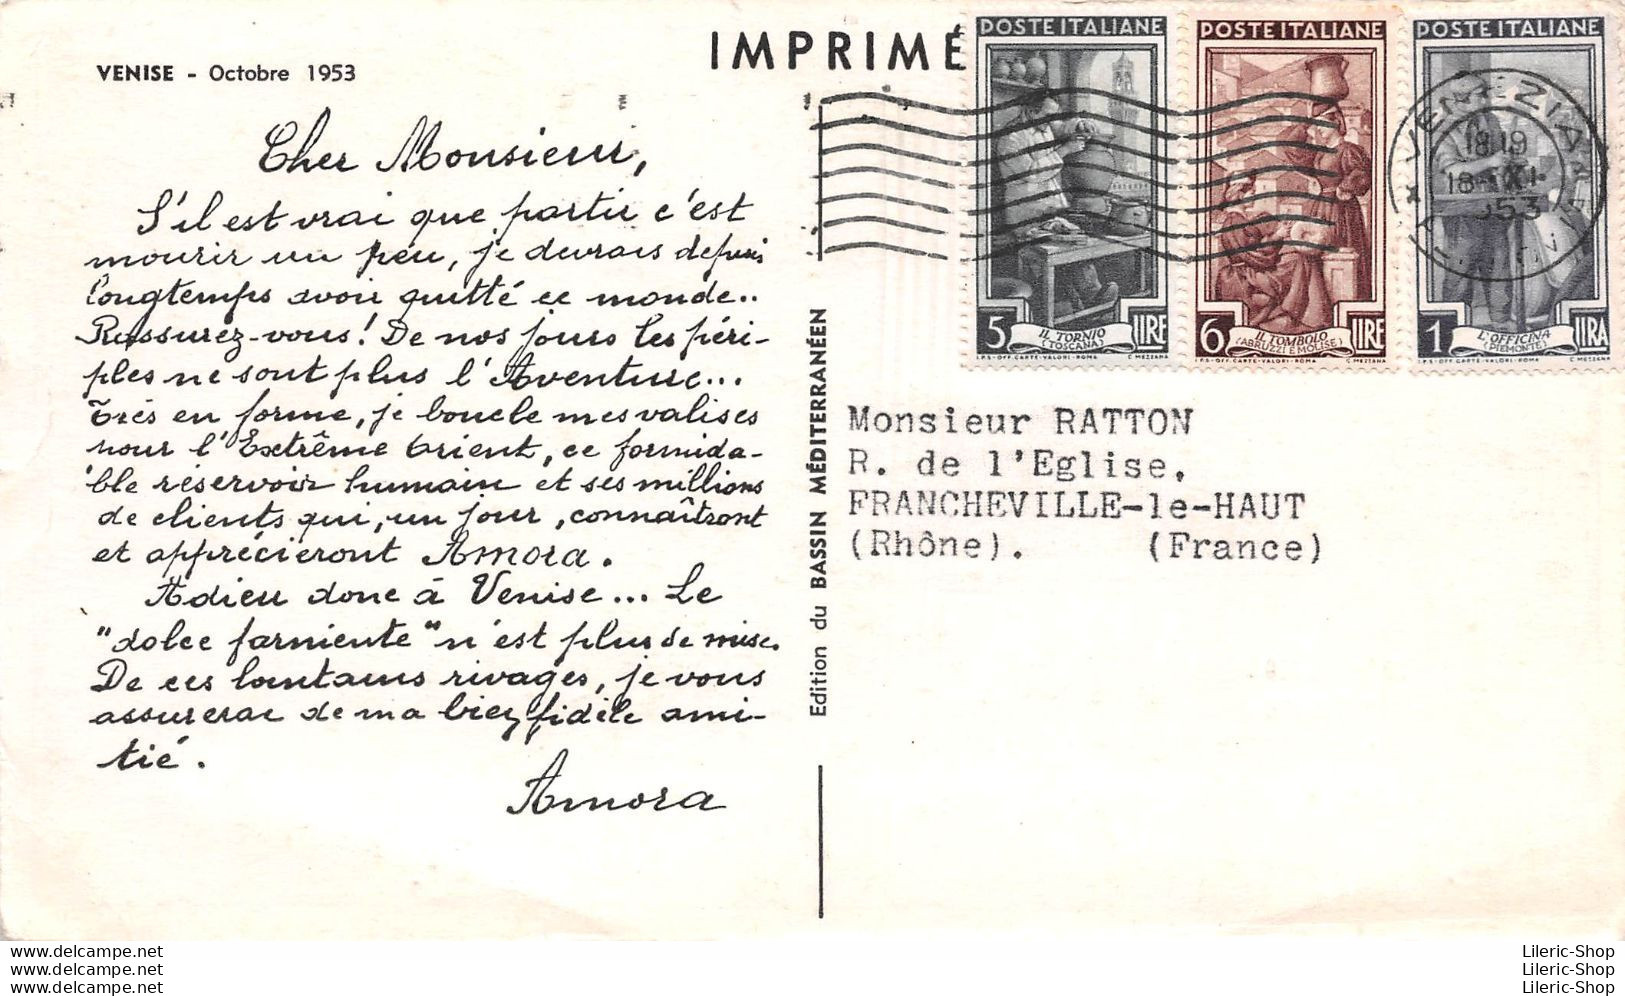 VENISE - Octobre 1953
IMPRIMÉ
Cher Monsieur,
S'il est vrai que partir c'est
mourir un peu, je devrais depuis
longtemps avoir quitté ce monde..
Rassurez-vous! De nos jours les péri-
ples ne sont plus l'Aventure...
Très en forme, je boucle mes valises
pour l'Extrême Orient, ce formida-
ble réservoir humain et ses millions
de clients qui, un jour, connaîtront
et apprécieront Amora.
Adieu donc à Venise... Le
"dolce farniente" n'est plus de mise.
De ces lointains rivages, je vous
assurerai de ma bien fidèle ami-
tié.
Amora
Edition du BASSIN MÉDITERRANÉEN
POSTE ITALIANE
5 IL TORNIO LIRE
(TOSCANA)
I.P.S-OFF. CARTE-VALORI-ROMA C. MEZZANA
POSTE ITALIANE
6 IL TOMBOLO LIRE
(ABRUZZI E MOLISE)
I.P.S-OFF. CARTE-VALORI-ROMA C. MEZZANA
POSTE ITALIANE
1 L'OFFICINA LIRA
(PIEMONTE)
I.P.S-OFF. CARTE-VALORI-ROMA C. MEZZANA
VENEZIA
18.19
Monsieur RATTON
R. de l'Eglise,
FRANCHEVILLE-le-HAUT
(Rhône). (France)
www.delcampe.net
www.delcampe.net
www.delcampe.net
Lileric-Shop
Lileric-Shop
Lileric-Shop